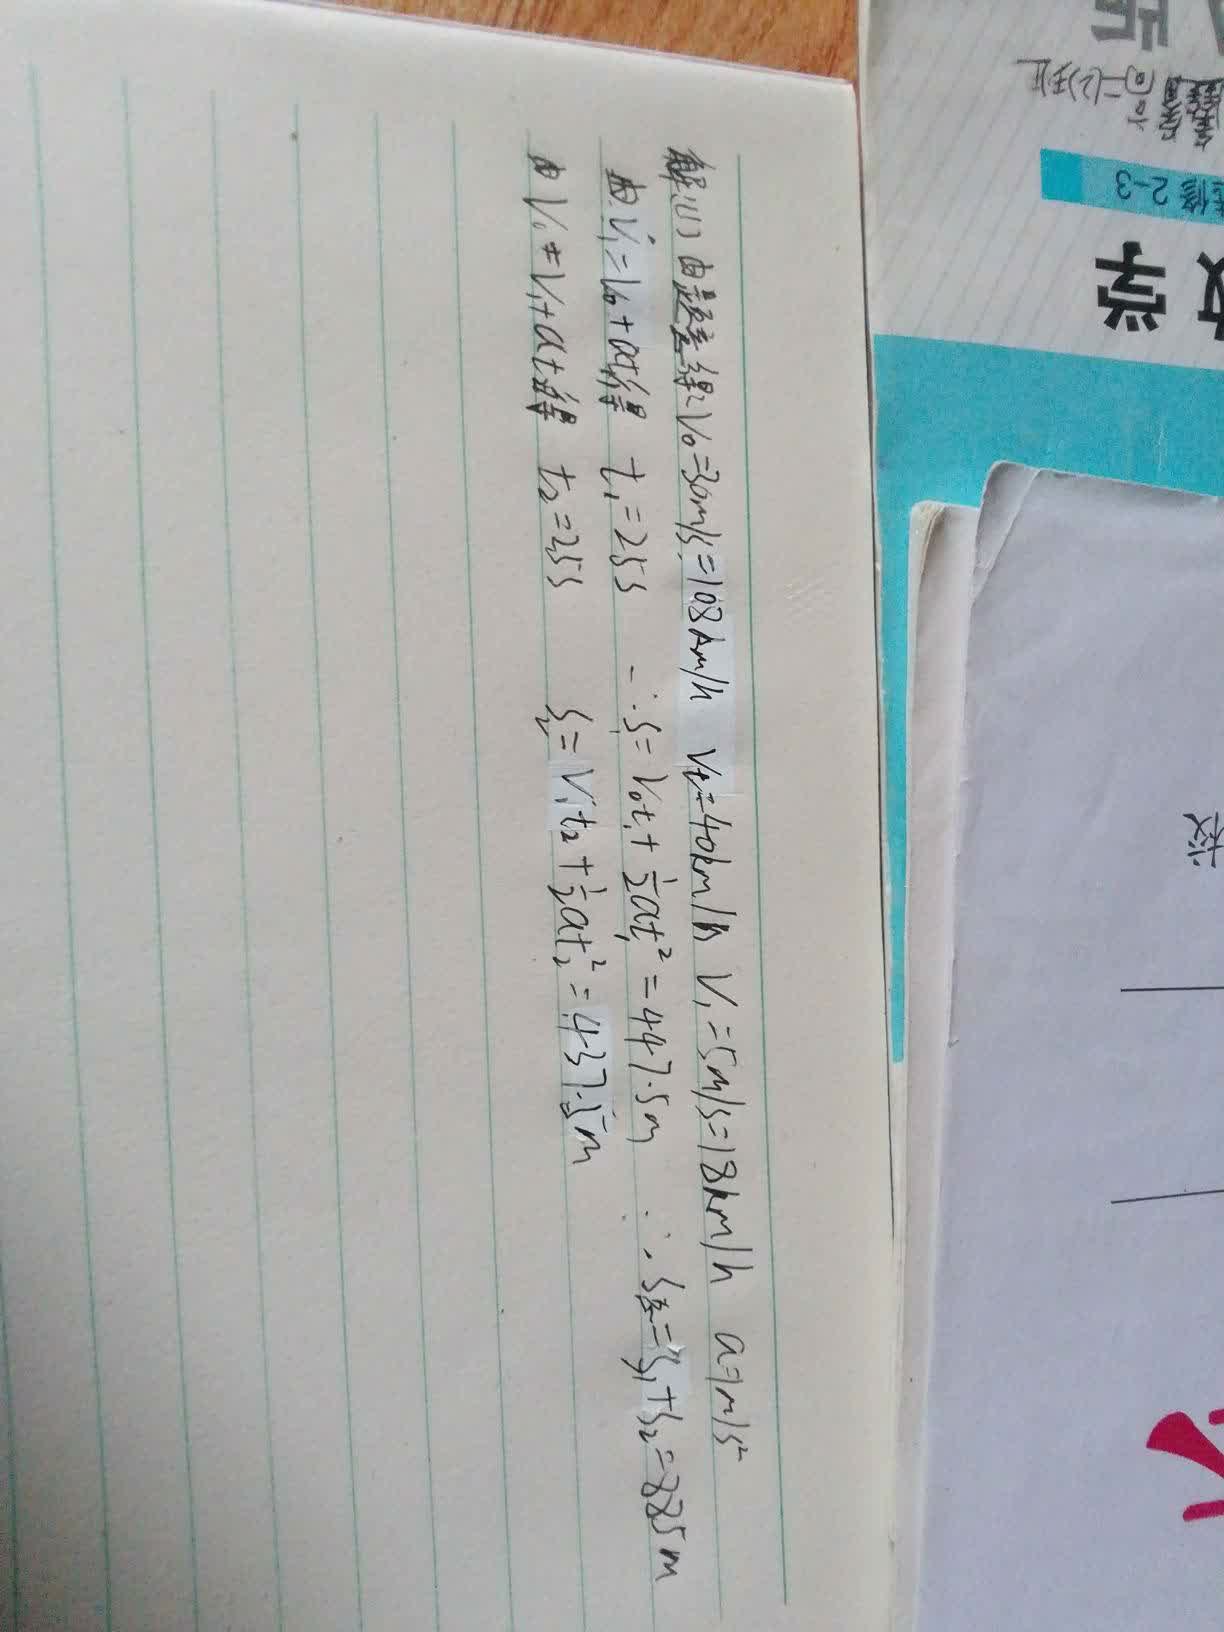 解:(1)由题意得:V₀=30m/s=108km/h Vt=40km/h V₁=5m/s=18km/h a=1m/s²
由V₁=V₀+at₁得 t₁=25s ∴S₁=V₀t₁+½at₁²=447.5m ∴S总=S₁+S₂=885m
由V₀=V₁+at₂得 t₂=25s S₂=V₁t₂+½at₂²=437.5m
版
高二(2)班
选修2-3
数学
校